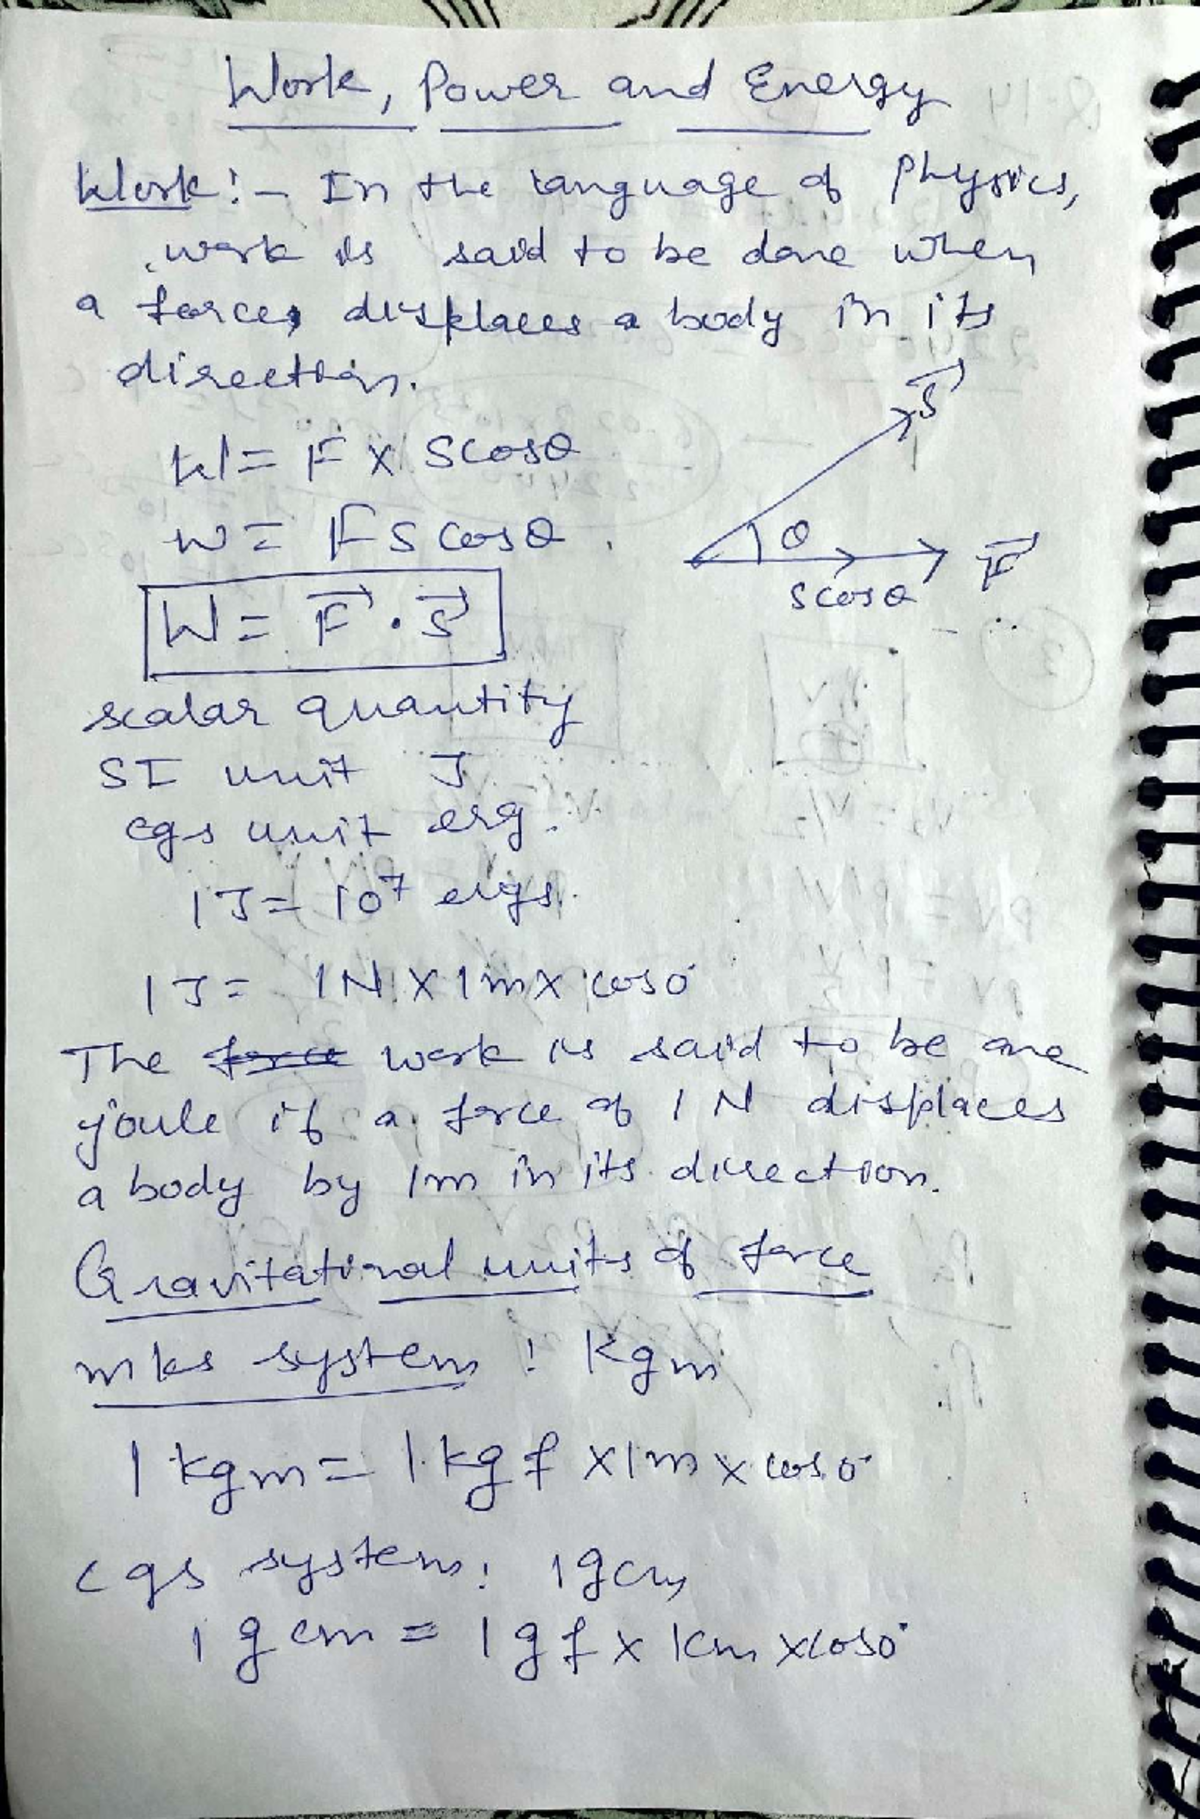 Work, Power and Energy
Work:- In the language of physics,
work is said to be done when
a force, displaces a body in its
direction.
S⃗
W = F x Scosθ
W = FScosθ
θ
F⃗
scosθ
W = F⃗ . S⃗
scalar quantity
SI unit J
cgs unit erg.
1J = 10⁷ ergs.
1J = 1N x 1m x cos0°
The force work is said to be one
joule if a force of 1N displaces
a body by 1m in its direction.
Gravitational units of force
mks system : kgm
1 kgm = 1 kgf x 1m x cos0°
cgs system: 1gcm
1 g cm = 1 gf x 1cm x cos0°